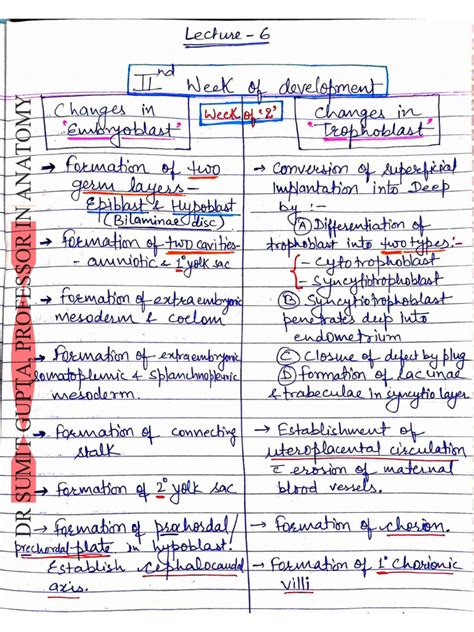 Lecture - 6
IInd Week of development
Changes in
"Embryoblast"
→ Formation of two
germ layers -
Epiblast & Hypoblast
(Bilaminar disc)
→ Formation of two cavities -
- amniotic & 1° yolk sac
→ Formation of extraembryonic
mesoderm & coelom
→ Formation of extraembryonic
somatopleuric & splanchnopleuric
mesoderm.
→ Formation of connecting
stalk
→ Formation of 2° yolk sac
→ Formation of prochordal/
prechordal plate in hypoblast.
Establish cephalocaudal
axis.
Week of '2'
Changes in
"Trophoblast"
→ Conversion of superficial
Implantation into Deep
by :-
(A) Differentiation of
trophoblast into two types :-
- Cytotrophoblast
- Syncytiotrophoblast
(B) Syncytiotrophoblast
penetrates deep into
endometrium
(C) Closure of defect by plug
(D) formation of lacunae
& trabeculae in syncytio layer
→ Establishment of
uteroplacental circulation
c̄ erosion of maternal
blood vessels.
→ Formation of chorion.
→ Formation of 1° Chorionic
villi
DR SUMIT GUPTA, PROFESSOR IN ANATOMY